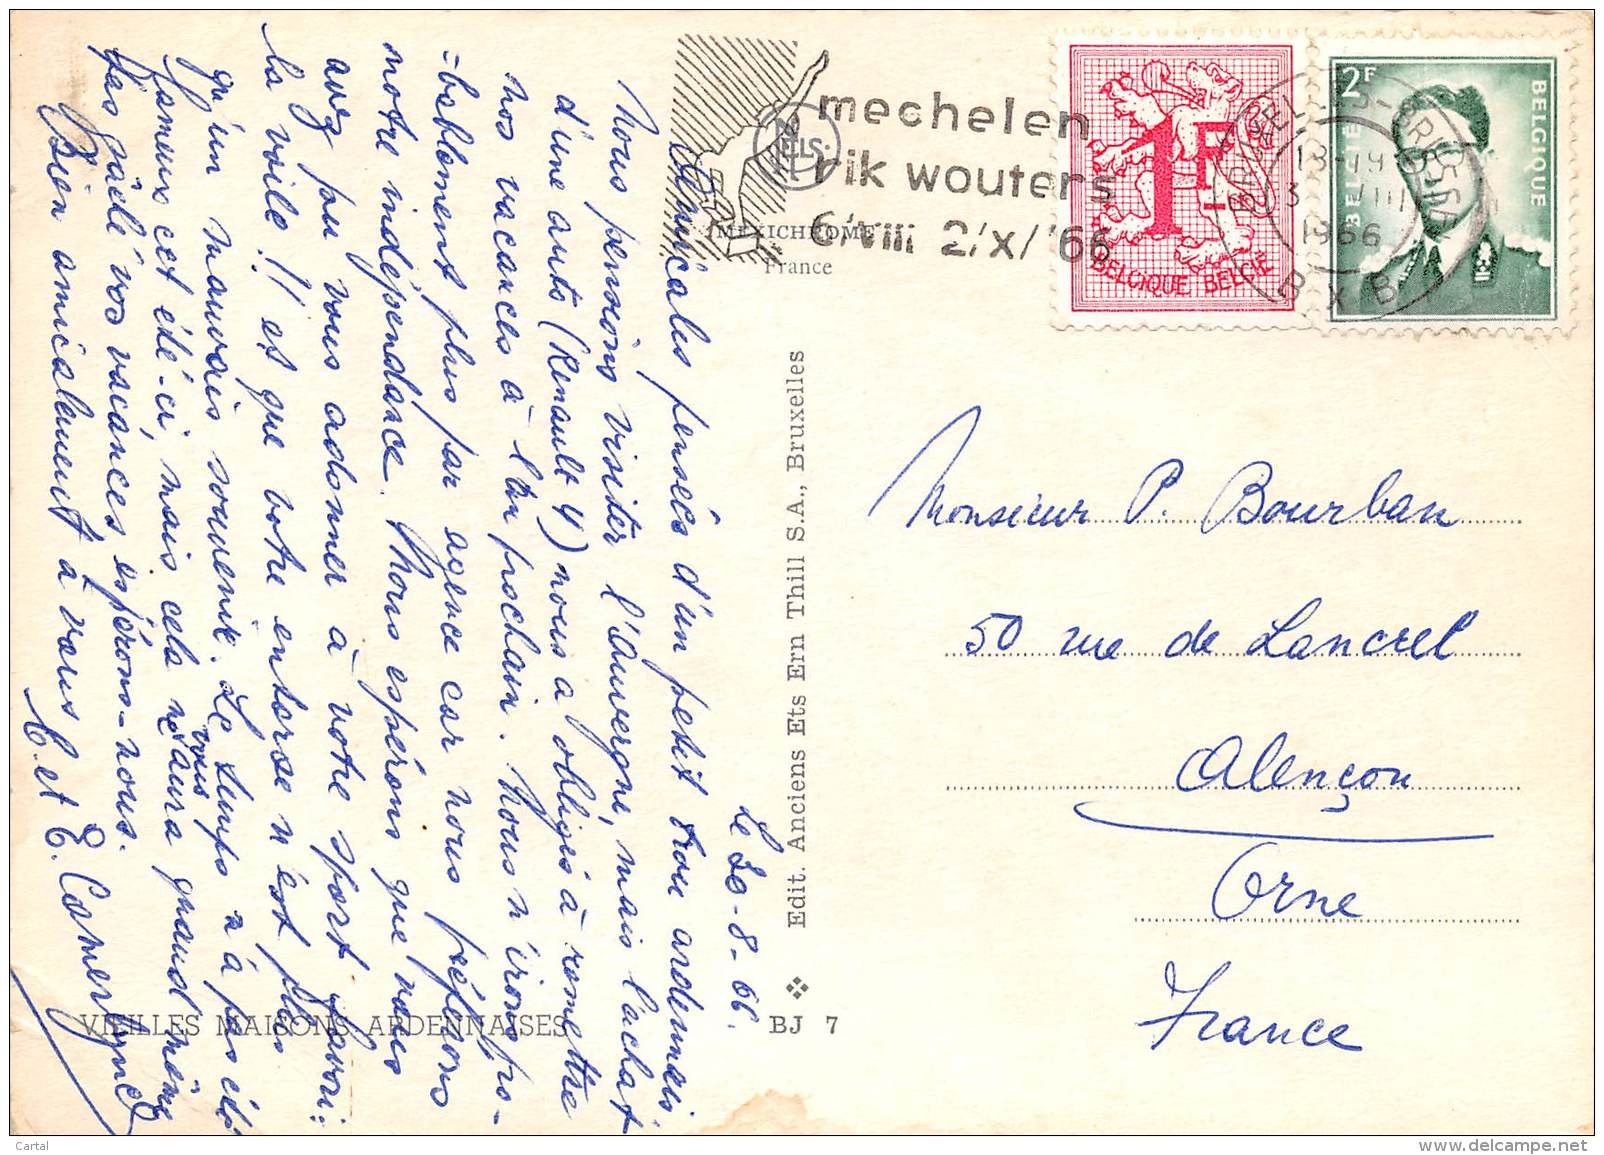 Le 20-8-66.
Amicales pensées d'un petit trou ardennais
Nous pensions visiter l'Auvergne, mais l'achat
d'une auto (Renault 4) nous a obligés à remettre
nos vacances à l'an prochain. Nous n'irons pro-
=bablement plus par agence car nous préférons
notre indépendance. Nous espérons que vous
avez pu vous adonner à votre sport favori:
la voile! et que votre entorse n'est plus
qu'un mauvais souvenir. Le temps n'a pas été
fameux cet été-ci, mais cela ne vous aura quand même
pas gâché vos vacances, espérons-nous.
Bien amicalement à vous
C. et E.
mechelen
rik wouters
6/viii 2/x/'66
NELS
MEXICHROME
France
1F
BELGIQUE BELGIE
2F
BELGIE BELGIQUE
BRUXEL
13-19
VIII
1966
B x B
Edit. Anciens Ets Ern Thill S.A., Bruxelles
VIEILLES MAISONS ARDENNAISES
BJ 7
Monsieur P. Bourban
50 rue de Lancrel
Alençon
Orne
France
Cartal
www.delcampe.net